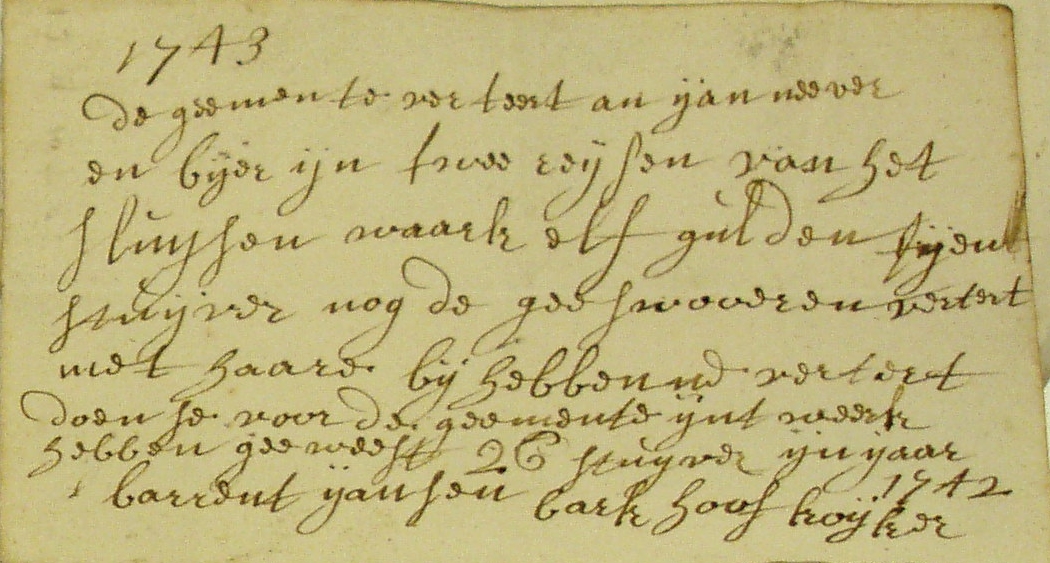 1743
de geemente verteert an yan neever
en byer yn twee reysen van het
sluyssen waark elf gulden tyen
stuyver nog de geeswooeren vertert
met haare by hebbenne vertert
doen se voor de geemente ynt weerk
hebben geeweest 26 stuyver yn yaar
1742
barrent yansen bark hoof koyker